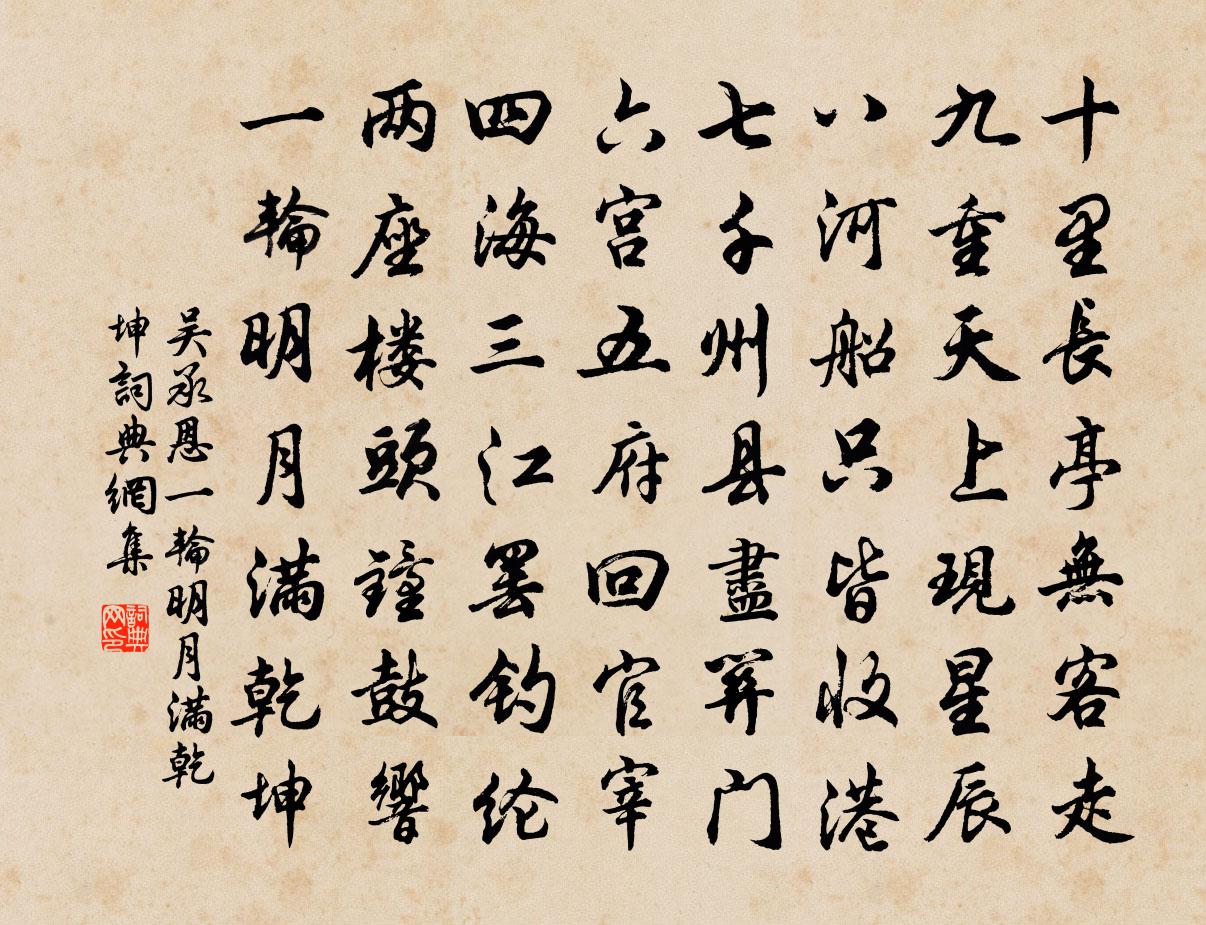 十里長亭無客走
九重天上現星辰
八河船只皆收港
七千州县盡关门
六宫五府回官宰
四海三江罢钓纶
两座楼頭鐘鼓響
一輪明月满乾坤
吴承恩一輪明月满乾
坤詞典網集
詞典
网印